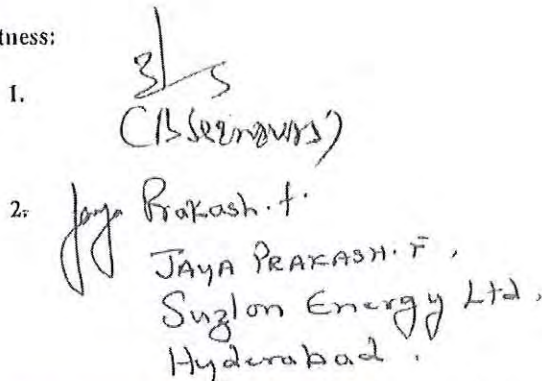 tness:
1.
2. Jaya Prakash. f.
JAYA PRAKASH. F,
Suzlon Energy Ltd,
Hyderabad.